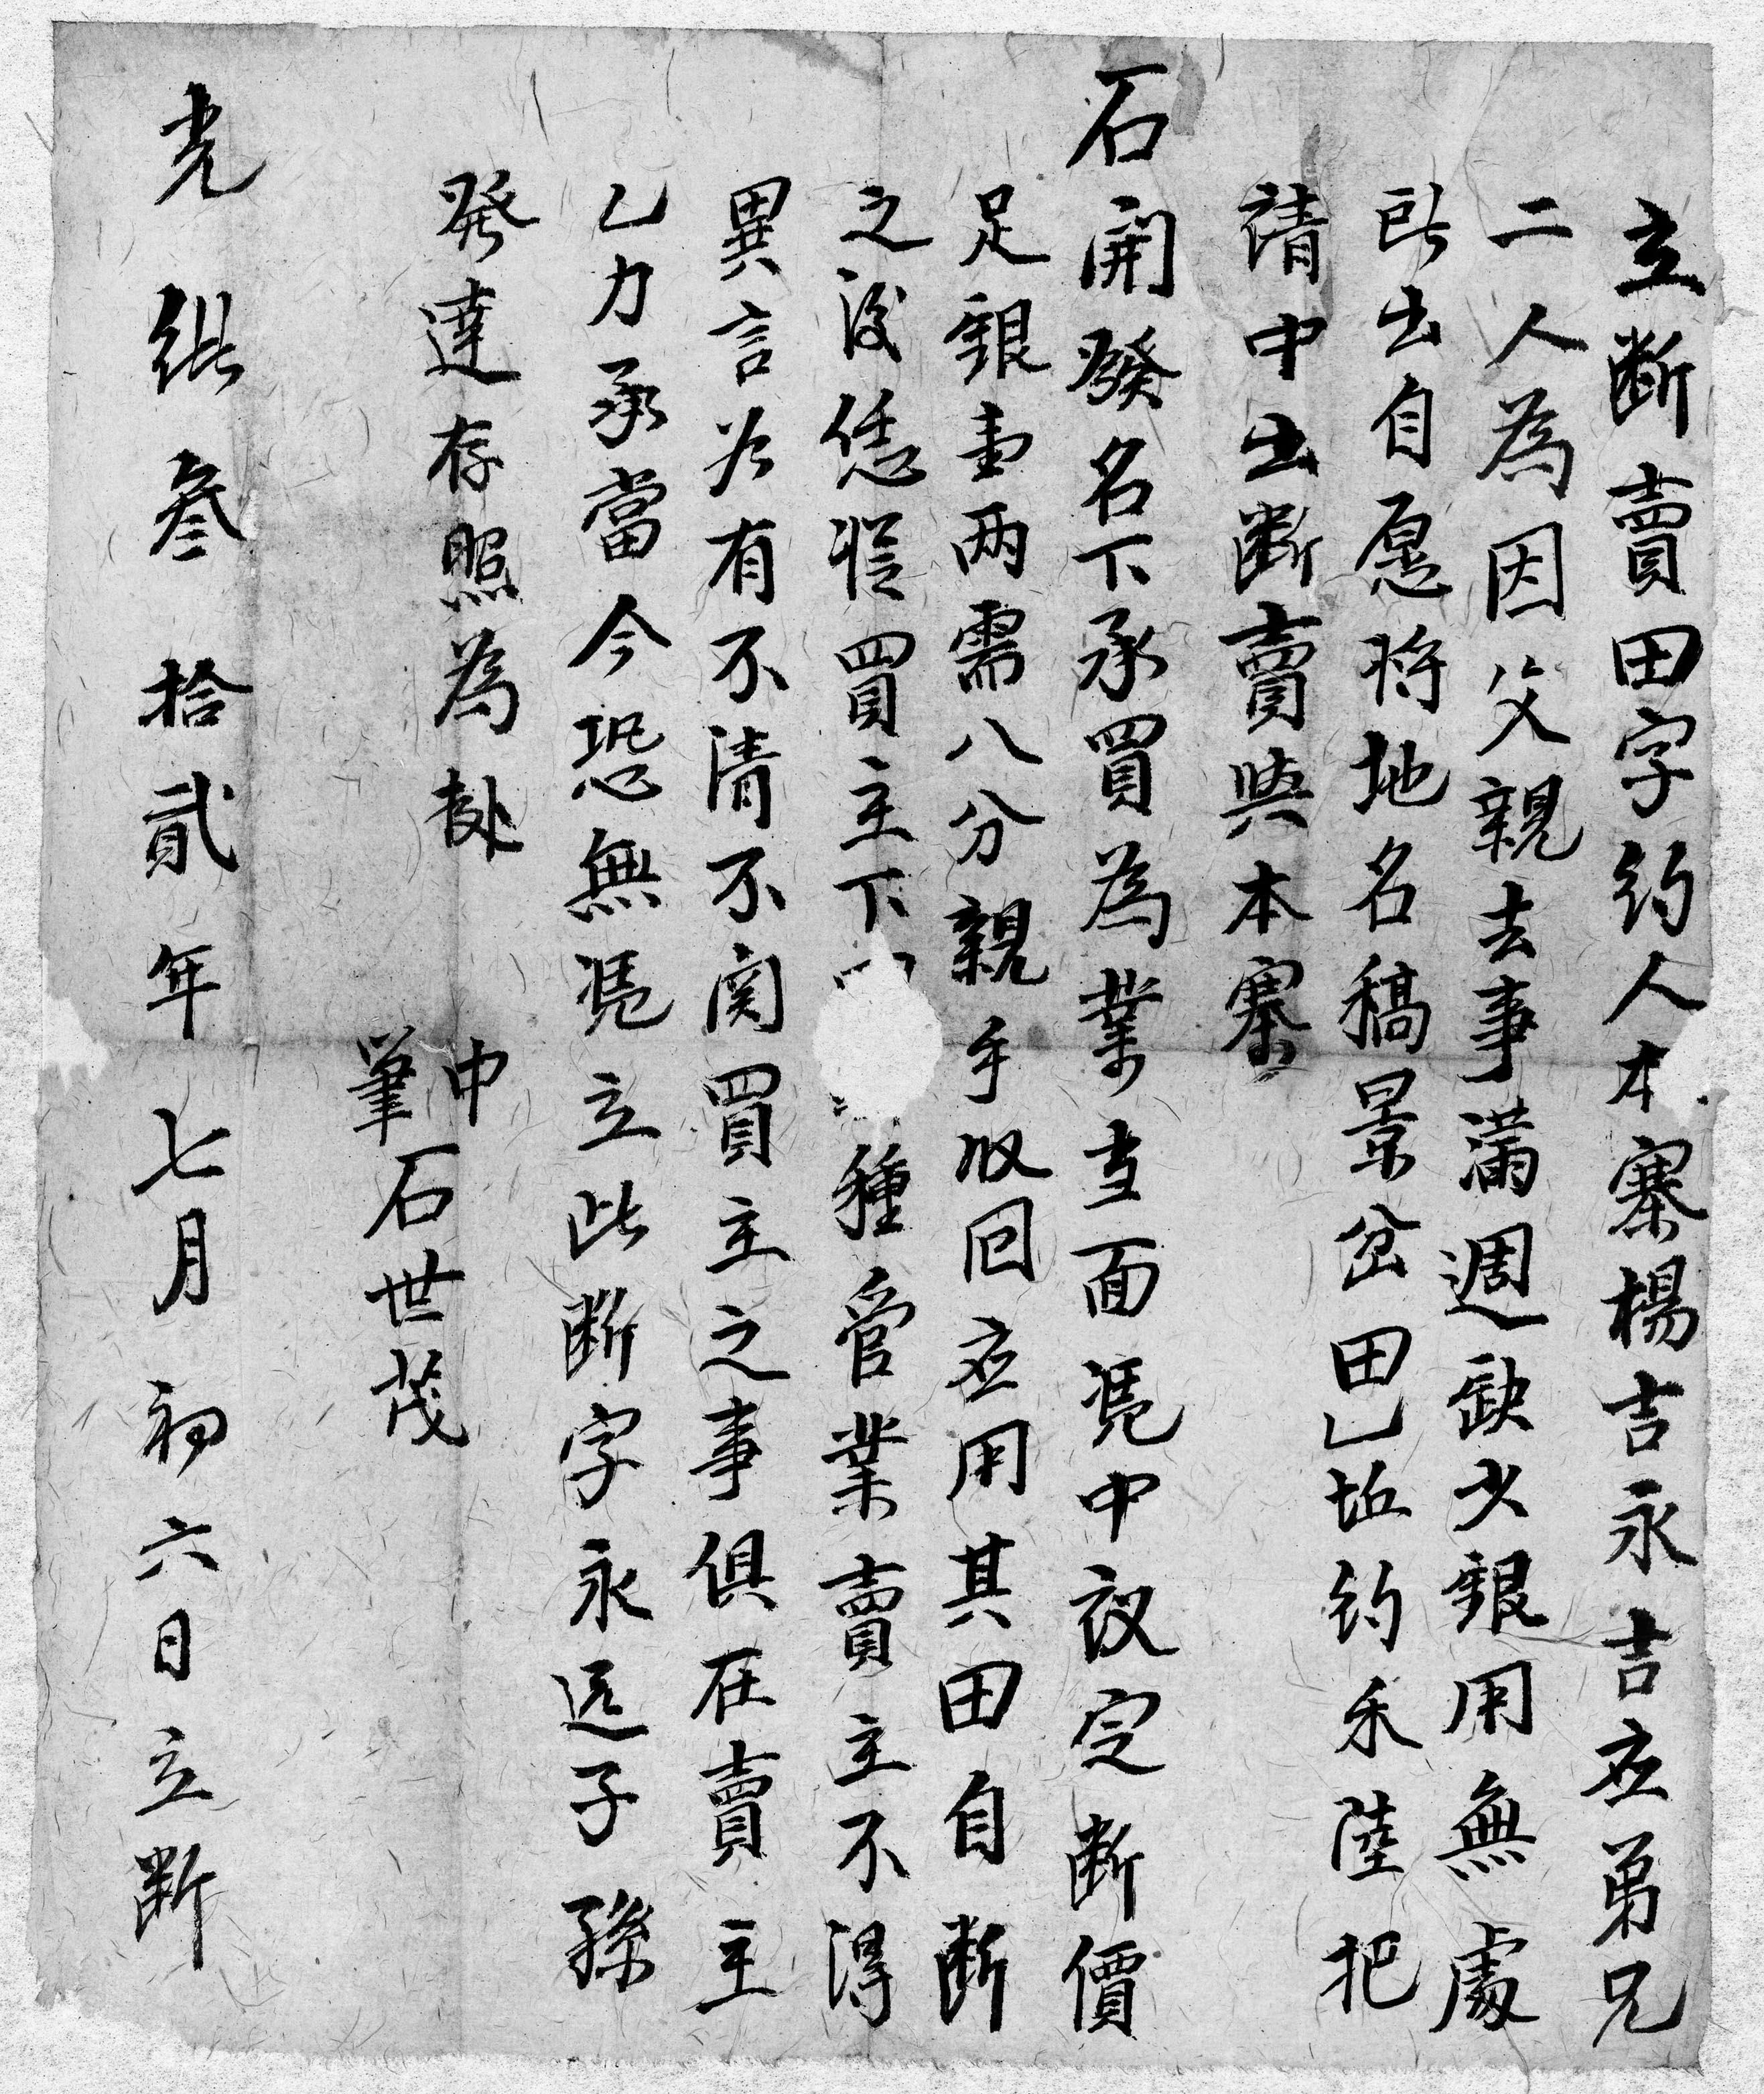 立断賣田字約人本寨楊吉永吉在弟兄
二人為因父親去事滿週缺少銀用無處
所出自愿将地名稿景岔田乚坵約禾陸把
請中出断賣與本寨
石開發名下承買為業当面凴中议定断價
足銀壹两需八分親手收回应用其田自断
之後恁從買主下種管業賣主不得
異言若有不清不関買主之事俱在賣主
乙力承當今恐無凴立此断字永远子孫
發達存照為処
中
筆
石世茂
光绪叄拾貳年七月初六日立断